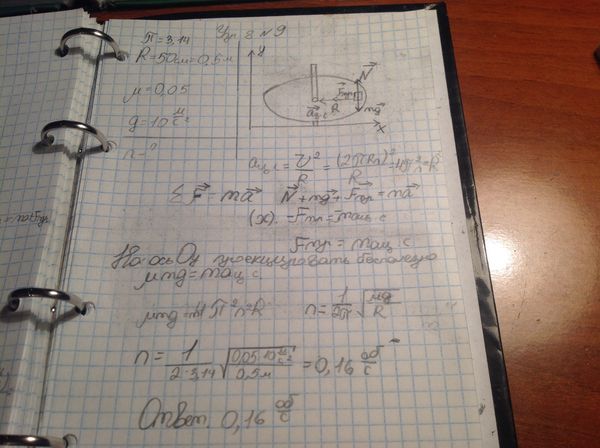 π = 3,14
Упр 8 № 9
R = 50см = 0,5м
μ = 0,05
g = 10 м/с²
n - ?
y
N
Fтр
R
aц.с
mg
x
aц.с = v²/R = (2πRn)²/R = 4π²n²R
ΣF = ma N + mg + Fтр = ma
(x). -Fтр = -maц.с
Fтр = maц.с
На ось Oy проецировать бесполезно
μmg = maц.с
μmg = m4π²n²R n = 1/2π √μg/R
n = 1/2·3,14 √0,05·10 м/с²/0,5м = 0,16 об/с
Ответ. 0,16 об/с